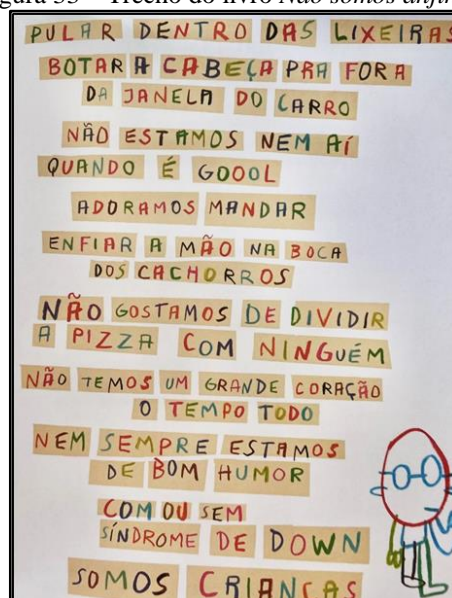 gura 33 – Trecho do livro Não somos anjin
PULAR DENTRO DAS LIXEIRAS
BOTAR A CABEÇA PRA FORA
DA JANELA DO CARRO
NÃO ESTAMOS NEM AÍ
QUANDO É GOOOL
ADORAMOS MANDAR
ENFIAR A MÃO NA BOCA
DOS CACHORROS
NÃO GOSTAMOS DE DIVIDIR
A PIZZA COM NINGUÉM
NÃO TEMOS UM GRANDE CORAÇÃO
O TEMPO TODO
NEM SEMPRE ESTAMOS
DE BOM HUMOR
COM OU SEM
SÍNDROME DE DOWN
SOMOS CRIANÇAS